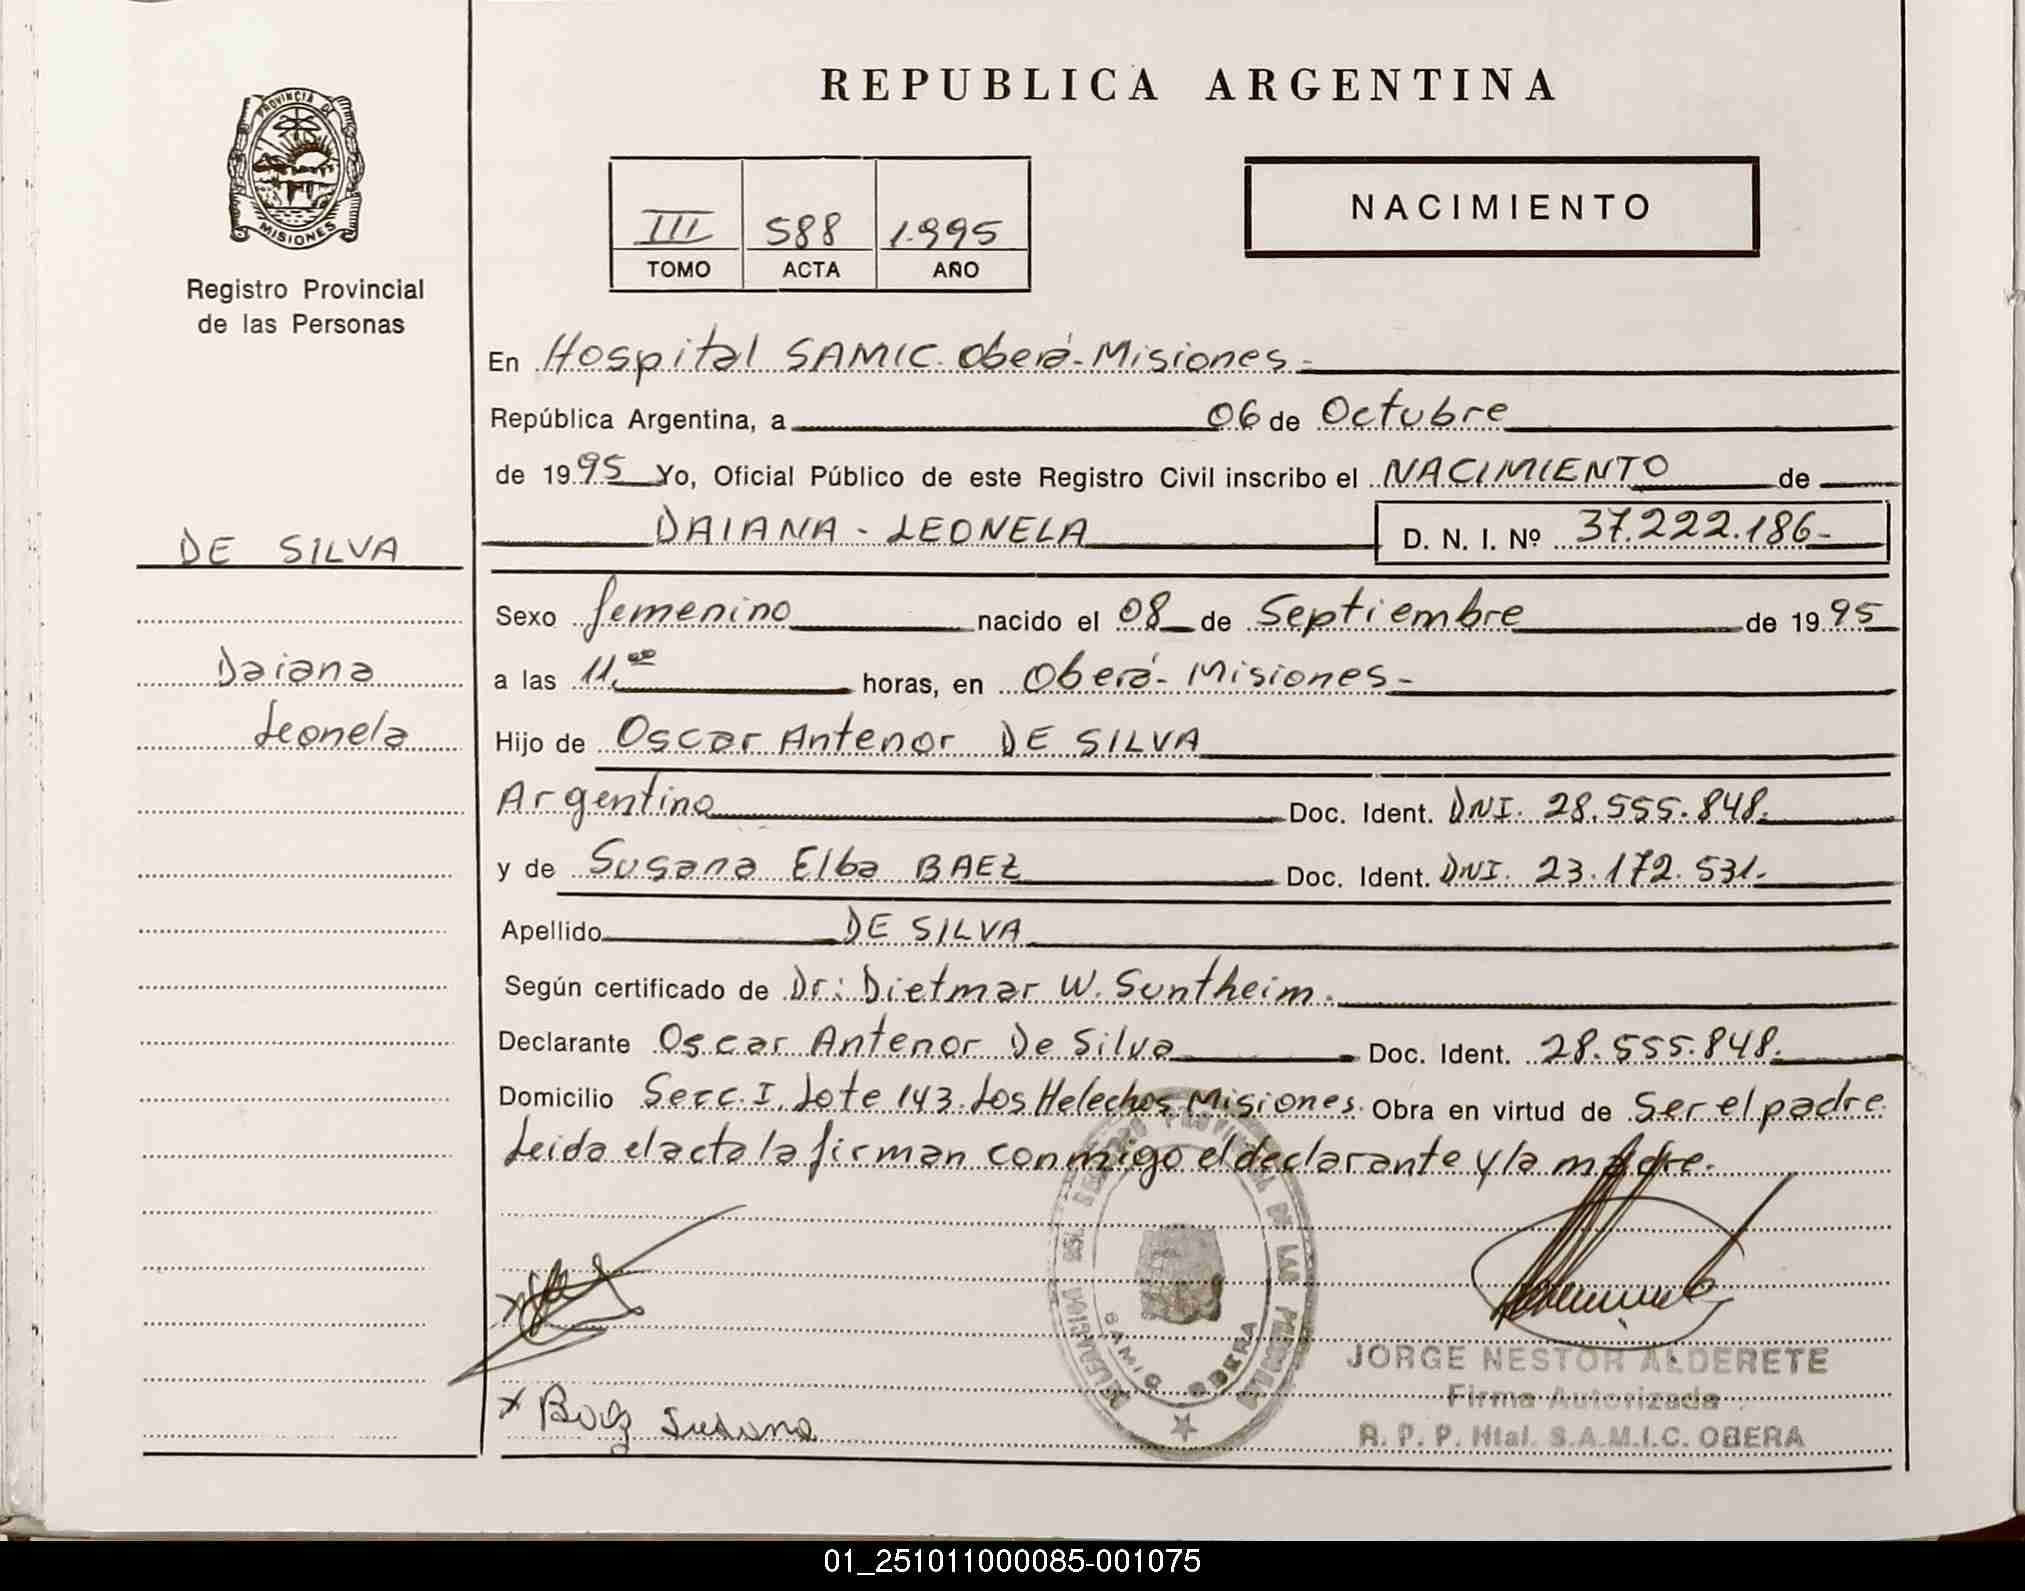 REPUBLICA ARGENTINA
PROVINCIA DE MISIONES
Registro Provincial
de las Personas
III 588 1.995
TOMO ACTA AÑO
NACIMIENTO
En Hospital SAMIC. Oberá-Misiones-
República Argentina, a 06 de Octubre
de 1995 Yo, Oficial Público de este Registro Civil inscribo el NACIMIENTO de
DE SILVA
DAIANA - LEONELA D. N. I. Nº 37.222.186-
Sexo femenino nacido el 08 de Septiembre de 1995
Daiana
a las 11.00 horas, en Oberá- Misiones-
Leonela
Hijo de Oscar Antenor DE SILVA
Argentino Doc. Ident. DNI. 28.555.848.
y de Susana Elba BAEZ Doc. Ident. DNI. 23.172.531.
Apellido DE SILVA
Según certificado de Dr: Dietmar W. Suntheim.
Declarante Oscar Antenor De Silva Doc. Ident. 28.555.848.
Domicilio Secc. I. Lote 143. Los Helechos Misiones. Obra en virtud de Ser el padre
Leida el acta la firman conmigo el declarante y la madre.
PROVINCIAL DE LAS PERSONAS
SAMIC OBERA
JORGE NESTOR ALDERETE
Firma Autorizada
R. P. P. Htal. S.A.M.I.C. OBERA
x Baez Susana
01_251011000085-001075